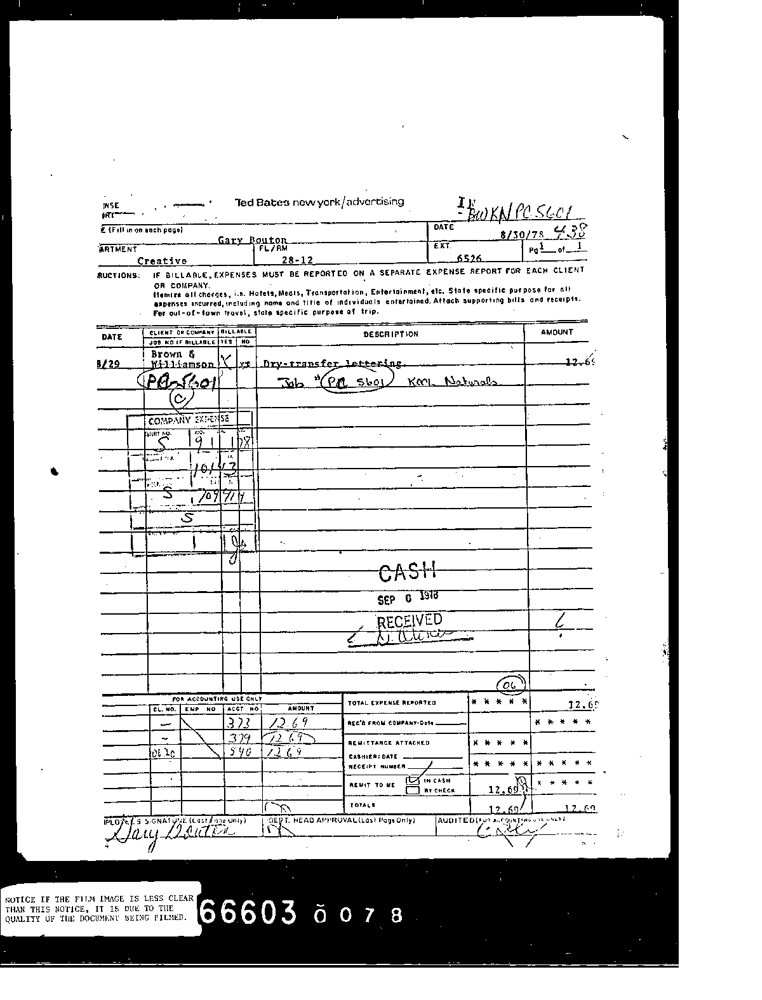 NSE
Ted Bates new york/advertising
BWKNPC5601
E (Fill in on each page)
Gary Bouton
DATE
8/30/78
ARTMENT
Creative
FL/RM
28-12
EXT.
6526
Pg 1 of 1
RUCTIONS: IF BILLABLE, EXPENSES MUST BE REPORTED ON A SEPARATE EXPENSE REPORT FOR EACH CLIENT
OR COMPANY.
Itemize all charges, i.e. Hotels, Meals, Transportation, Entertainment, etc. State specific purpose for all
expenses incurred, including name and title of individuals entertained. Attach supporting bills and receipts.
For out-of-town travel, state specific purpose of trip.
DATE
CLIENT OR COMPANY
BILLABLE
DESCRIPTION
AMOUNT
JOB NO IF BILLABLE
YES
NO
8/29
Brown &
Williamson
X
Dry-transfer lettering
12.69
Job # PC 5601 Kool Naturals
C
COMPANY EXPENSE
S
S
S
CASH
SEP 6 1978
RECEIVED
06
FOR ACCOUNTING USE ONLY
CL. NO.
EMP NO
ACCT NO
AMOUNT
373
12.69
379
12.69
590
12.69
TOTAL EXPENSE REPORTED
* * * * *
12.69
REC'D FROM COMPANY-Date
* * * * *
REMITTANCE ATTACHED
* * * * *
CASHIER: DATE
RECEIPT NUMBER
* * * * *
* * * * *
REMIT TO ME
IN CASH
BY CHECK
12.69
* * * * *
TOTALS
12.69
12.69
PLOYEE'S SIGNATURE (Last Page Only)
Gary Bouton
DEPT. HEAD APPROVAL (Last Page Only)
AUDITED (FOR ACCOUNTING USE ONLY)
NOTICE IF THE FILM IMAGE IS LESS CLEAR
THAN THIS NOTICE, IT IS DUE TO THE
QUALITY OF THE DOCUMENT BEING FILMED.
66603 0078